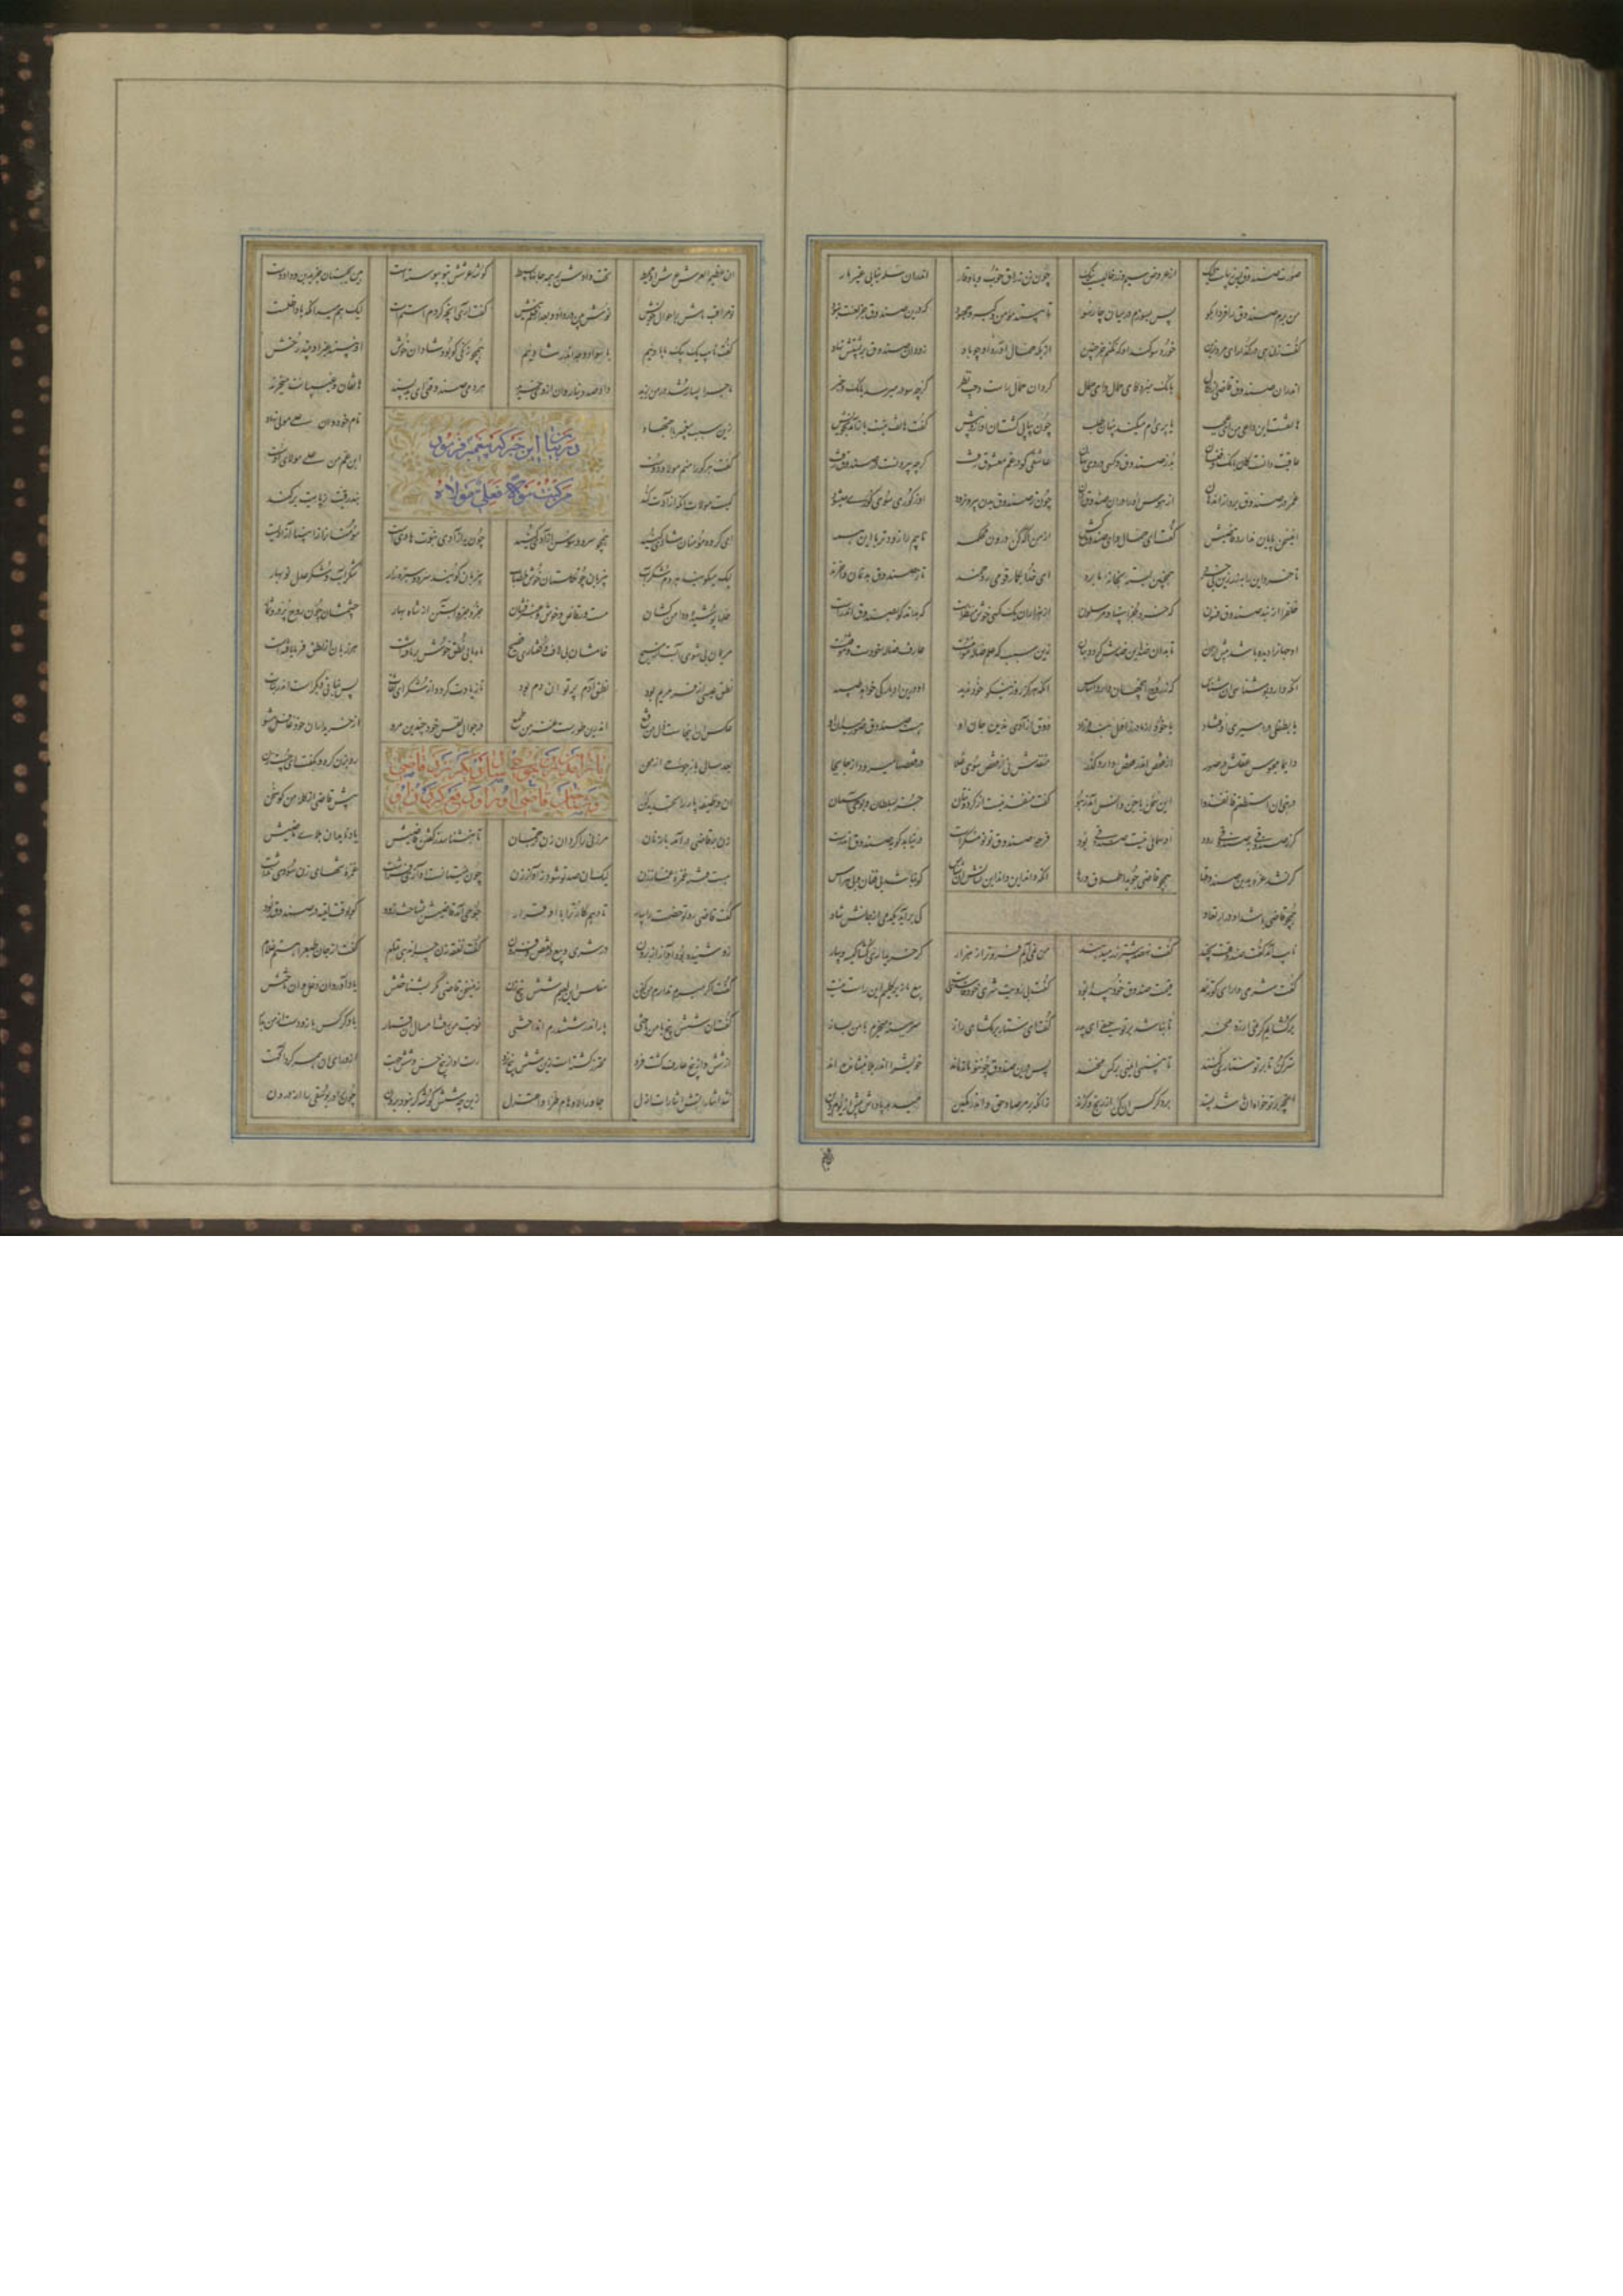 صورت صندوق بس زیباست لیک از عروض و سیم و زر خالیست نیک چون تن زراق خوب و با وقار اندر آن سله نیابی غیر مار
من برم صندوق را فردا بکو پس بسوزم در میان چارسو تا ببیند مؤمن و گبر و جهود که درین صندوق جز لعنت نبود
گفت زن هی در گذر ای مرد ازین خورد سوگند او که نکنم جز چنین از پگه حمال آورد او چو باد زود آن صندوق بر پشتش نهاد
اندران صندوق قاضی از نکال بانگ میزد کای حمال و ای حمال کرد آن حمال راست و چپ نظر کز چه سو در میرسد بانگ و خبر
هاتفست این داعی من ای عجب یا پری ام میکند پنهان طلب چون پیاپی گشت آن آواز و بیش گفت هاتف نیست باز آمد بخویش
عاقبت دانست کان بانگ و فغان بد ز صندوق و کسی در وی نهان عاشقی کو در غم معشوق رفت گرچه بیرونست در صندوق رفت
عمر در صندوق برد از اندهان از هوس او را در آن صندوق دان چون ز صندوق بدن بیرون رود او ز گوری سوی گوری میشود
این سخن پایان ندارد قاضیش گفت ای حمال و ای صندوق کش از من آگه کن درون محکمه نایبم را زودتر با این همه
تا خرد این را بزر زین بی خرد همچنین بسته بخانه ما برد ای خدا بگمار قومی رحمند تا ز صندوق بدنمان وا خرند
خلق را از بند صندوق فسون که خرد جز انبیا و مرسلون از هزاران یک کسی خوش منظرست که بداند کو بصندوق اندرست
او جهان را دیده باشد پیش ازان تا بدان ضد این ضدش گردد عیان زین سبب که علم ضاله مؤمنست عارف ضاله خودست و موقنست
آنکه هرگز روز نیکو خود ندید او درین ادبار کی خواهد طپید
یا بطفلی در اسیری اوفتاد یا خود از اول ز مادر بنده زاد ذوق آزادی ندیده جان او هست صندوق صور میدان او
دایما محبوس عقلش در صور از قفص اندر قفص دارد گذر منفذش نی از قفص سوی علا در قفصها میرود از جا بجا
در نبی ان استطعتم فانفذوا این سخن با جن و انس آمد ز هو گفت منفذ نیست از گردونتان جز بسلطان و بوحی آسمان
گر ز صندوقی بصندوقی رود او سمائی نیست صندوقی بود فرجه صندوق نو نو منکرست در نیابد کو بصندوق اندرست
گر نشد غره بدین صندوقها همچو قاضی جوید اطلاق و رها آنکه داند این نشانش آن شناس کو نباشد بی فغان و بی هراس
همچو قاضی باشد او در ارتعاد کی برآید یکدمی از جانش شاد
نایب آمد گفت صندوقت بچند گفت نهصد بیشتر زر میدهند من نمی آیم فروتر از هزار گر خریداری گشا کیسه بیار
گفت شرمی دار ای کوته نمد قیمت صندوق خود پیدا بود گفت بی رؤیت شری خود فاسدیست بیع ما زیر گلیم این راست نیست
برگشایم گر نمی ارزد مخر تا نباشد بر تو حیفی ای پدر گفت ای ستار بر مگشای راز سر ببسته میخرم با من بساز
ستر کن تا بر تو ستاری کنند تا نبینی ایمنی بر کس مخند بس درین صندوق چون تو مانده اند خویش را اندر بلا بنشانده اند
آنچه بر تو خواه آن باشد پسند بر دگر کس آن کن از رنج و گزند زانکه بر مرصاد حق و اندر کمین میدهد پاداش پیش از یوم دین
آن عظیم العرش عرش او محیط تخت دادش بر همه جانها بسیط گوشه عرشش بتو پیوسته است هین مجنبان جز بدین و داد دست
تو مراقب باش بر احوال خویش نوش بین در داد و بعد از ظلم نیش گفت آری آنچه کردم استم است لیک هم میدان که بادی اظلمست
گفت نایب یک بیک ما بادییم با سواد وجه اندر شادییم همچو زنگی کو بود شادان و خوش او نبیند غیر او بیند رخش
ماجرا بسیار شد در من یزید داد صد دینار و آن از وی خرید هر دمی صندوقیی ای بد پسند هاتفان و غیبیانت میخرند
در بیان این خبر که پیغمبر فرمود
من کنت مولاه فعلی مولاه
زین سبب پیغمبر با اجتهاد نام خود وان علی مولا نهاد
گفت هر کو را منم مولا و دوست ابن عم من علی مولای اوست
کیست مولا آنکه آزادت کند بند رقیت ز پایت بر کند
ای گروه مؤمنان شادی کنید همچو سرو و سوسن آزادی کنید چون بآزادی نبوت هادیست مؤمنان را ز انبیا آزادیست
لیک میگویید هر دم شکر آب بی زبان چون گلستان خوش خضاب بی زبان گویند سرو و سبزه زار شکر آب و شکر عدل نوبهار
حلها پوشیده و دامن کشان مست و رقاص و خوش و عنبرفشان جزو جزو آبستن از شاه بهار جسمشان چون درج پر در ثمار
مریمان بی شوی آبست از مسیح خامشان بی لاف و گفتاری فصیح ماه ما بی نطق خوش بر تافتست هر زبان نطق از فر ما یافتست
نطق عیسی از فر مریم بود نطق آدم پرتو آن دم بود تا زیادت گردد از شکر ای ثقات پس نبات دیگرست اندر نبات
عکس آن اینجاست ذل من قنع اندرین طورست عز من طمع در جوال نفس خود چندین مرو از خریداران خود غافل مشو
باز آمدن زن جوحی سال دیگر نزد قاضی
و شناختن قاضی او را
بعد سالی باز جوحی از محن رو بزن کرد و بگفت ای چست زن
آن وظیفه پار را تجدید کن پیش قاضی از گله من گو سخن
زن بر قاضی درآمد با زنان مر زنی را کرد آن زن ترجمان تا بنشناسد ز گفتن قاضیش یاد ناید از بلای ماضیش
هست فتنه غمزه غماز زن لیک آن صد تو شود ز آواز زن چون نمیتانست آوازی فراشت غمزه تنهای زن سودی نداشت
گفت قاضی رو تو خصمت را بیار تا دهم کار ترا با او قرار جوحی آمد قاضیش نشناخت زود کو بوقت لقیه در صندوق بود
زو شنیده بود آواز از برون در شری و بیع و در نقص و فزون گفت نفقه زن چرا ندهی تمام گفت از جان شرع را هستم غلام
لیک اگر میرم ندارم من کفن مفلس این لعبم و شش پنج زن زین سخن قاضی مگر بشناختش یاد آورد آن دغل وان باختش
گفت آن شش پنج با من باختی پار اندر ششدرم انداختی نوبت من رفت امسال آن قمار با دگر کس باز دست از من بدار
از شش و از پنج عارف گشت فرد محترز گشتست زین شش پنج نرد رست او از پنج حس و شش جهت از ورای آن همه کرد آگهت
شد اشاراتش اشارات ازل جاوز الاوهام طرا و اعتزل زین چه شش گوشه گر نبود برون چون برآرد یوسفی را از درون